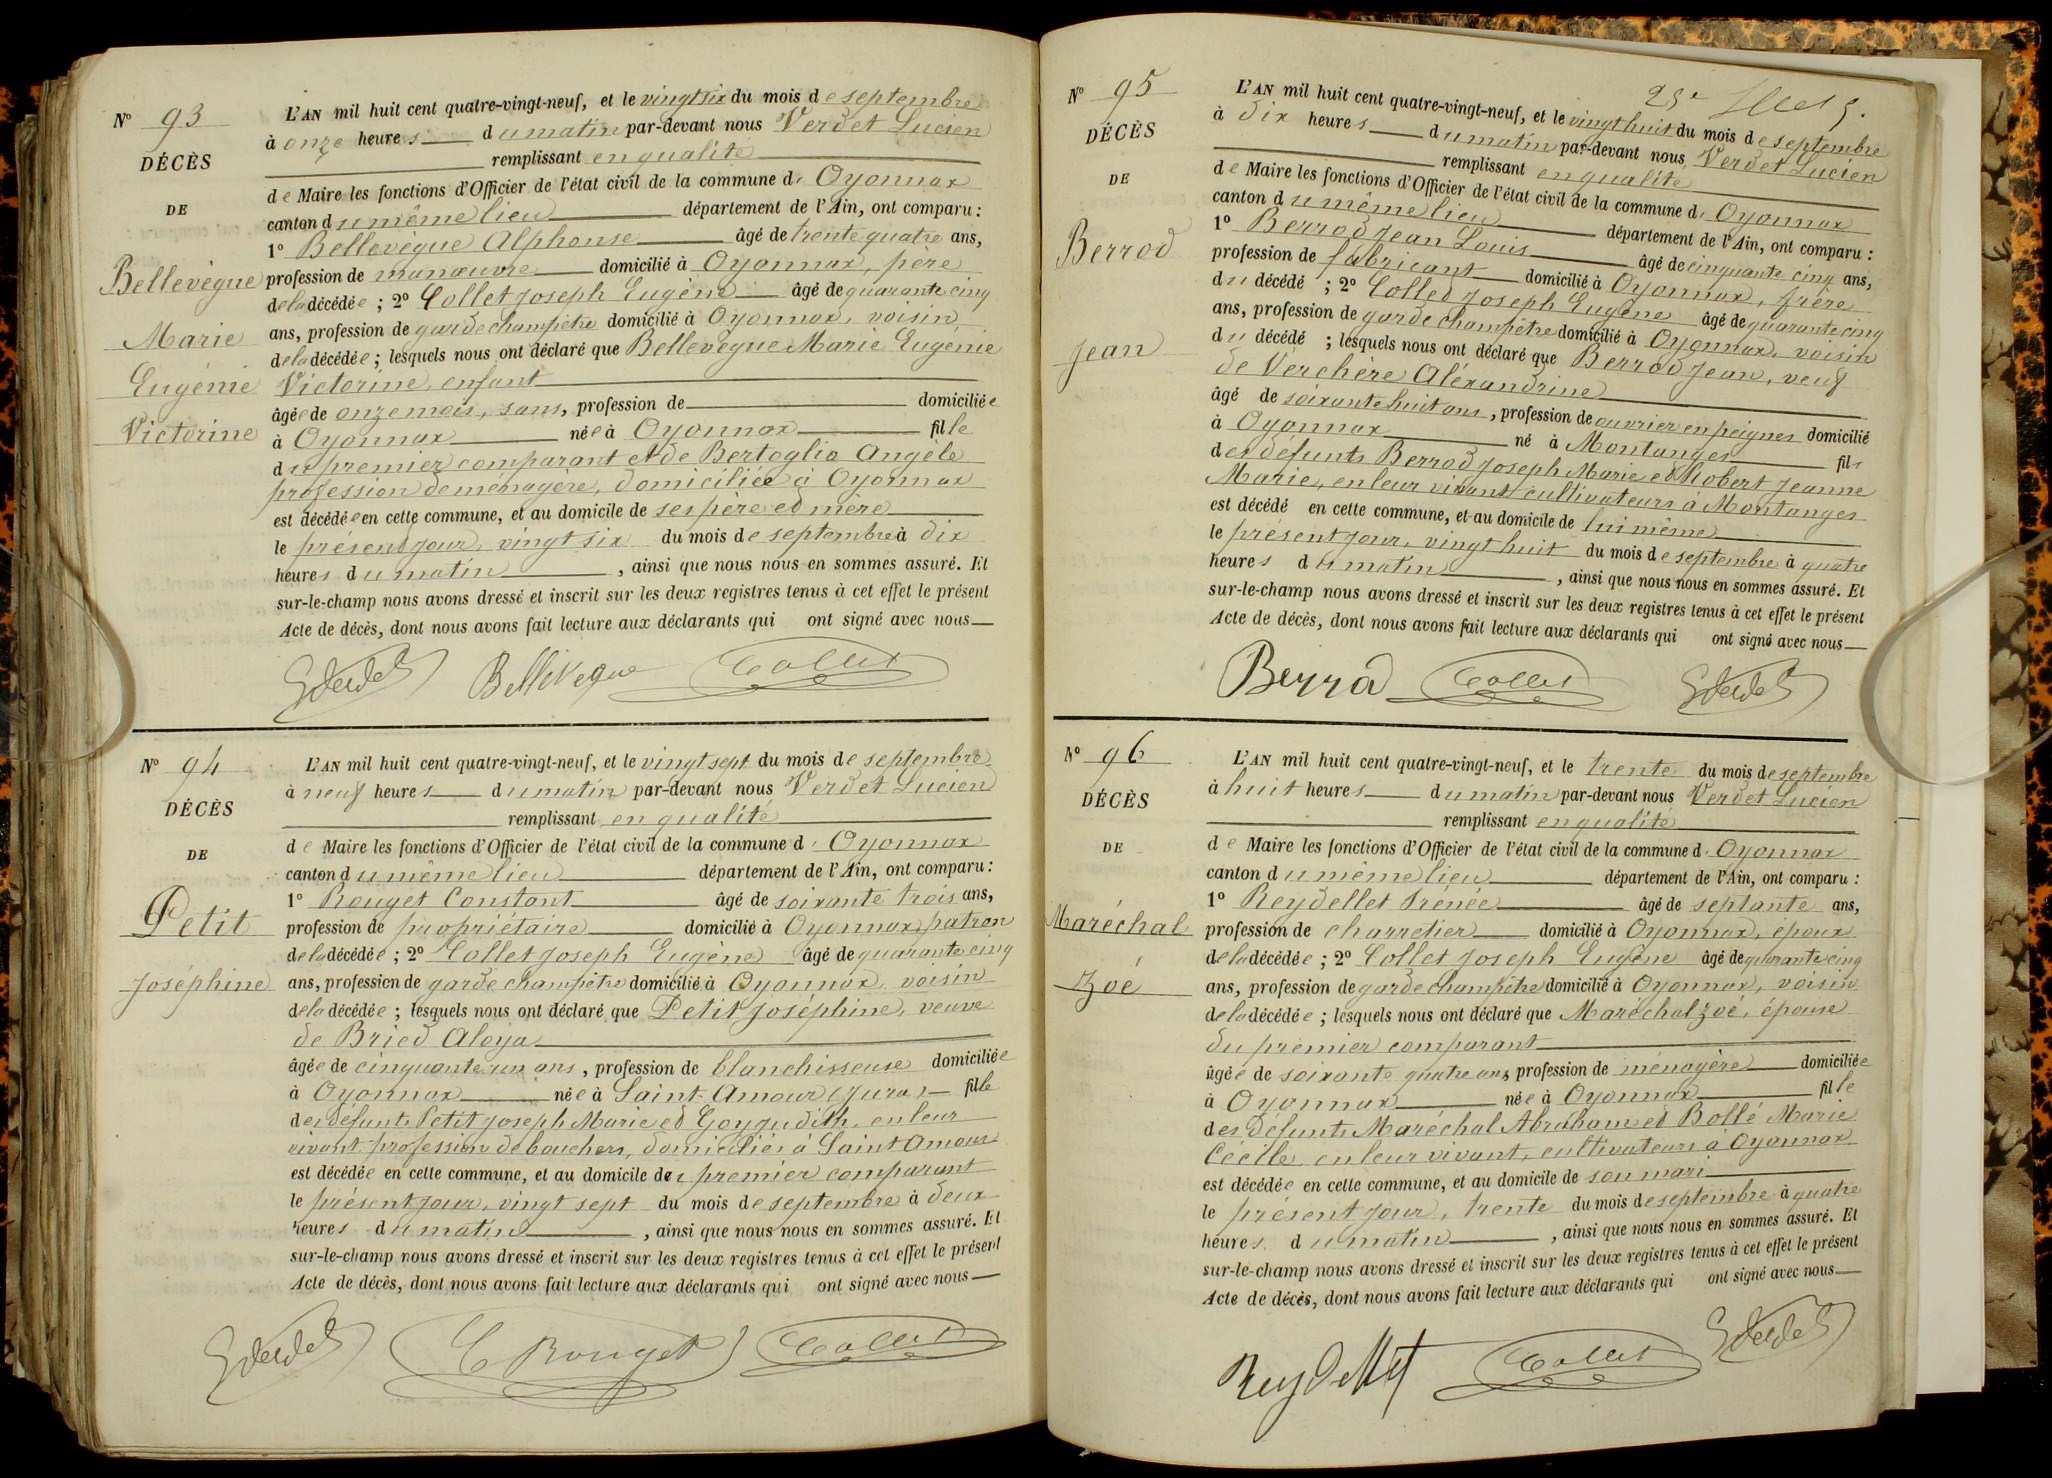 N° 93
DÉCÈS
DE
Bellevègue
Marie
Eugénie
Victorine
L'AN mil huit cent quatre-vingt-neuf, et le vingt six du mois de septembre
à onze heures du matin par-devant nous Verdet Lucien
remplissant en qualité
de Maire les fonctions d'Officier de l'état civil de la commune d' Oyonnax
canton du même lieu département de l'Ain, ont comparu :
1° Bellevègue Alphonse âgé de trente quatre ans,
profession de manœuvre domicilié à Oyonnax, père
de la décédée ; 2° Collet Joseph Eugène âgé de quarante cinq
ans, profession de garde champêtre domicilié à Oyonnax, voisin
de la décédée ; lesquels nous ont déclaré que Bellevègue Marie Eugénie
Victorine, enfant
âgée de onze mois, sans, profession de domiciliée
à Oyonnax née à Oyonnax fille
du premier comparant et de Bertoglio Angèle
profession de ménagère, domiciliée à Oyonnax
est décédée en cette commune, et au domicile de ses père et mère
le présent jour, vingt six du mois de septembre à dix
heures du matin , ainsi que nous nous en sommes assuré. Et
sur-le-champ nous avons dressé et inscrit sur les deux registres tenus à cet effet le présent
Acte de décès, dont nous avons fait lecture aux déclarants qui ont signé avec nous
Bellevegue Collet
N° 94
DÉCÈS
DE
Petit
Joséphine
L'AN mil huit cent quatre-vingt-neuf, et le vingt sept du mois de septembre
à neuf heures du matin par-devant nous Verdet Lucien
remplissant en qualité
de Maire les fonctions d'Officier de l'état civil de la commune d' Oyonnax
canton du même lieu département de l'Ain, ont comparu :
1° Rouget Constant âgé de soixante trois ans,
profession de propriétaire domicilié à Oyonnax, patron
de la décédée ; 2° Collet Joseph Eugène âgé de quarante cinq
ans, profession de garde champêtre domicilié à Oyonnax, voisin
de la décédée ; lesquels nous ont déclaré que Petit Joséphine, veuve
de Bried Aloya
âgée de cinquante un ans, profession de blanchisseuse domiciliée
à Oyonnax née à Saint-Amour (Jura) fille
des défunts Petit Joseph Marie et Judith, en leur
vivant profession de bouchers, domiciliés à Saint Amour
est décédée en cette commune, et au domicile du premier comparant
le présent jour, vingt sept du mois de septembre à deux
heures du matin , ainsi que nous nous en sommes assuré. Et
sur-le-champ nous avons dressé et inscrit sur les deux registres tenus à cet effet le présent
Acte de décès, dont nous avons fait lecture aux déclarants qui ont signé avec nous
C Rouget Collet
N° 95
DÉCÈS
DE
Berrod
Jean
L'AN mil huit cent quatre-vingt-neuf, et le vingt huit du mois de septembre
à dix heures du matin par-devant nous Verdet Lucien
remplissant en qualité
de Maire les fonctions d'Officier de l'état civil de la commune d' Oyonnax
canton du même lieu département de l'Ain, ont comparu :
1° Berrod Jean Louis âgé de cinquante cinq ans,
profession de fabricant domicilié à Oyonnax, frère
du décédé ; 2° Collet Joseph Eugène âgé de quarante cinq
ans, profession de garde champêtre domicilié à Oyonnax, voisin
du décédé ; lesquels nous ont déclaré que Berrod Jean, veuf
de Verchère Aléxandrine
âgé de soixante huit ans, profession de ouvrier en peignes domicilié
à Oyonnax né à Montanges fils
des défunts Berrod Joseph Marie et Robert Jeanne
Marie, en leur vivant cultivateurs à Montanges
est décédé en cette commune, et au domicile de lui même
le présent jour, vingt huit du mois de septembre à quatre
heures du matin , ainsi que nous nous en sommes assuré. Et
sur-le-champ nous avons dressé et inscrit sur les deux registres tenus à cet effet le présent
Acte de décès, dont nous avons fait lecture aux déclarants qui ont signé avec nous
Berrod Collet
N° 96
DÉCÈS
DE
Maréchal
Zoé
L'AN mil huit cent quatre-vingt-neuf, et le trente du mois de septembre
à huit heures du matin par-devant nous Verdet Lucien
remplissant en qualité
de Maire les fonctions d'Officier de l'état civil de la commune d' Oyonnax
canton du même lieu département de l'Ain, ont comparu :
1° Reydellet Irénée âgé de septante ans,
profession de charretier domicilié à Oyonnax, époux
de la décédée ; 2° Collet Joseph Eugène âgé de quarante cinq
ans, profession de garde champêtre domicilié à Oyonnax, voisin
de la décédée ; lesquels nous ont déclaré que Maréchal Zoé, épouse
du premier comparant
âgée de soixante quatre ans, profession de ménagère domiciliée
à Oyonnax née à Oyonnax fille
des défunts Maréchal Abraham et Bollé Marie
Cécille en leur vivant, cultivateurs à Oyonnax
est décédée en cette commune, et au domicile de son mari
le présent jour, trente du mois de septembre à quatre
heures du matin , ainsi que nous nous en sommes assuré. Et
sur-le-champ nous avons dressé et inscrit sur les deux registres tenus à cet effet le présent
Acte de décès, dont nous avons fait lecture aux déclarants qui ont signé avec nous
Reydellet Collet